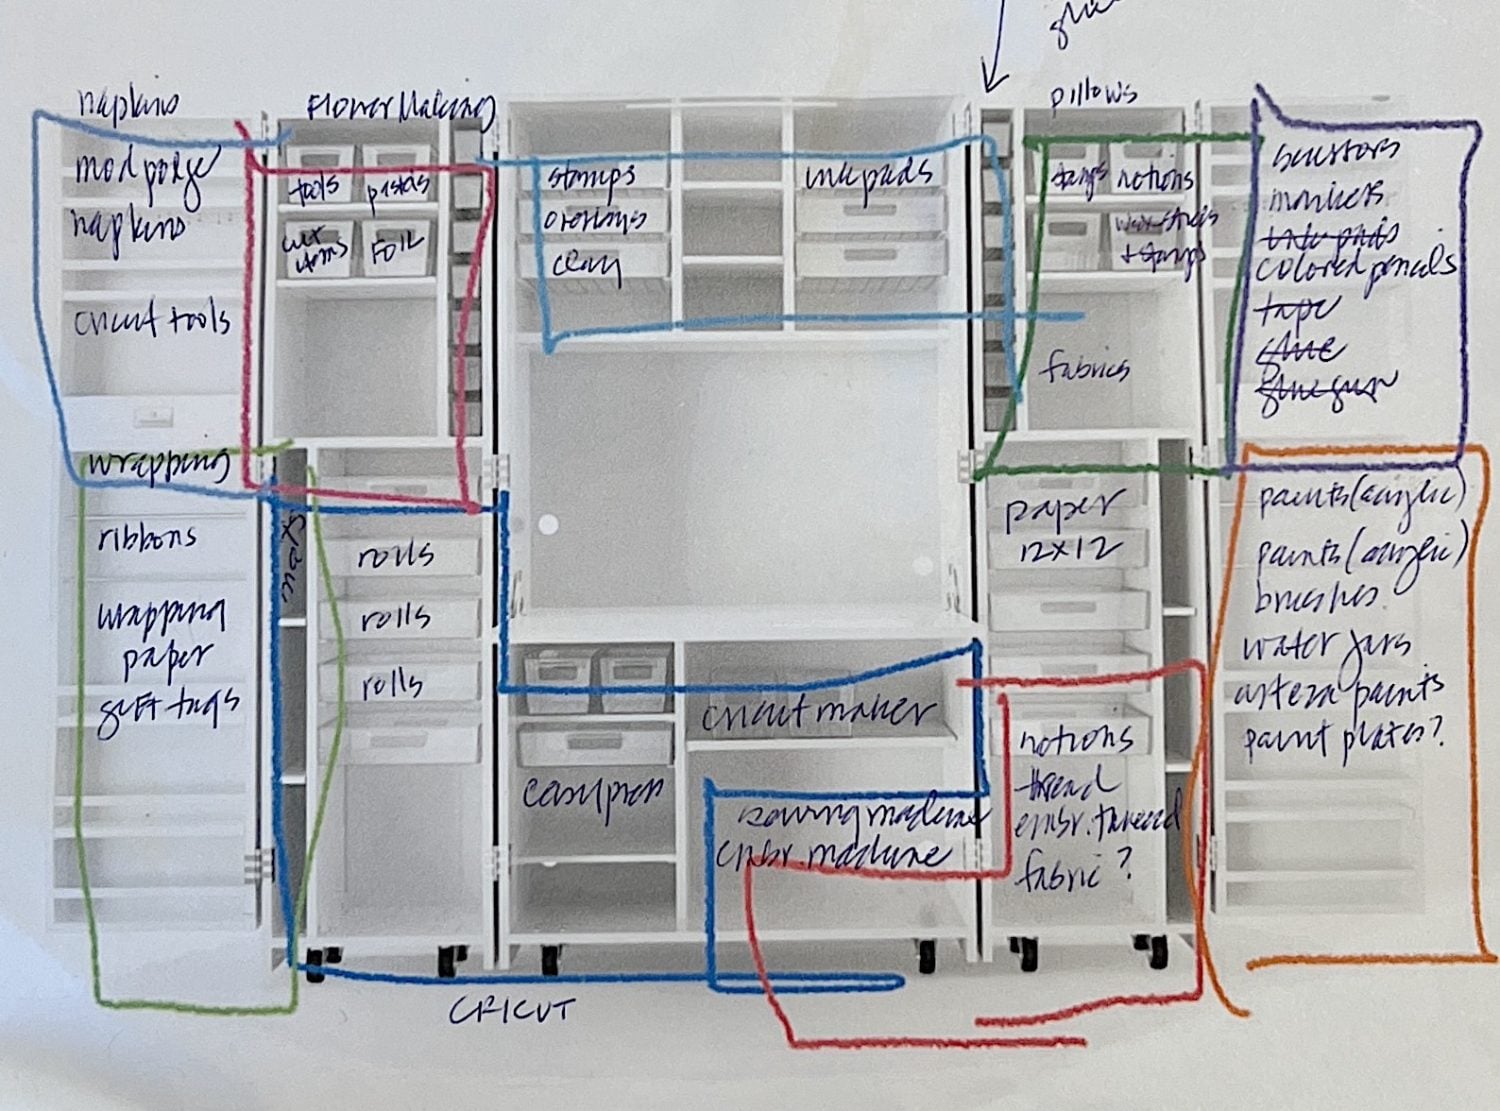 napkins
mod podge
napkins
cricut tools
Flower Making
tools
petals
wet items
FOIL
stamps
overlays
clay
inkpads
pillows
stamps
notions
wax seals
+ stamps
fabrics
scissors
markers
ink pads
colored pencils
tape
glue
glue gun
wrapping
ribbons
wrapping
paper
gift tags
mats
rolls
rolls
rolls
easypress
cricut maker
sewing machine
embr. machine
paper
12x12
notions
thread
embr. thread
fabric?
paints (acrylic)
paints (acrylic)
brushes
water jars
arteza paints
paint plates?
CRICUT